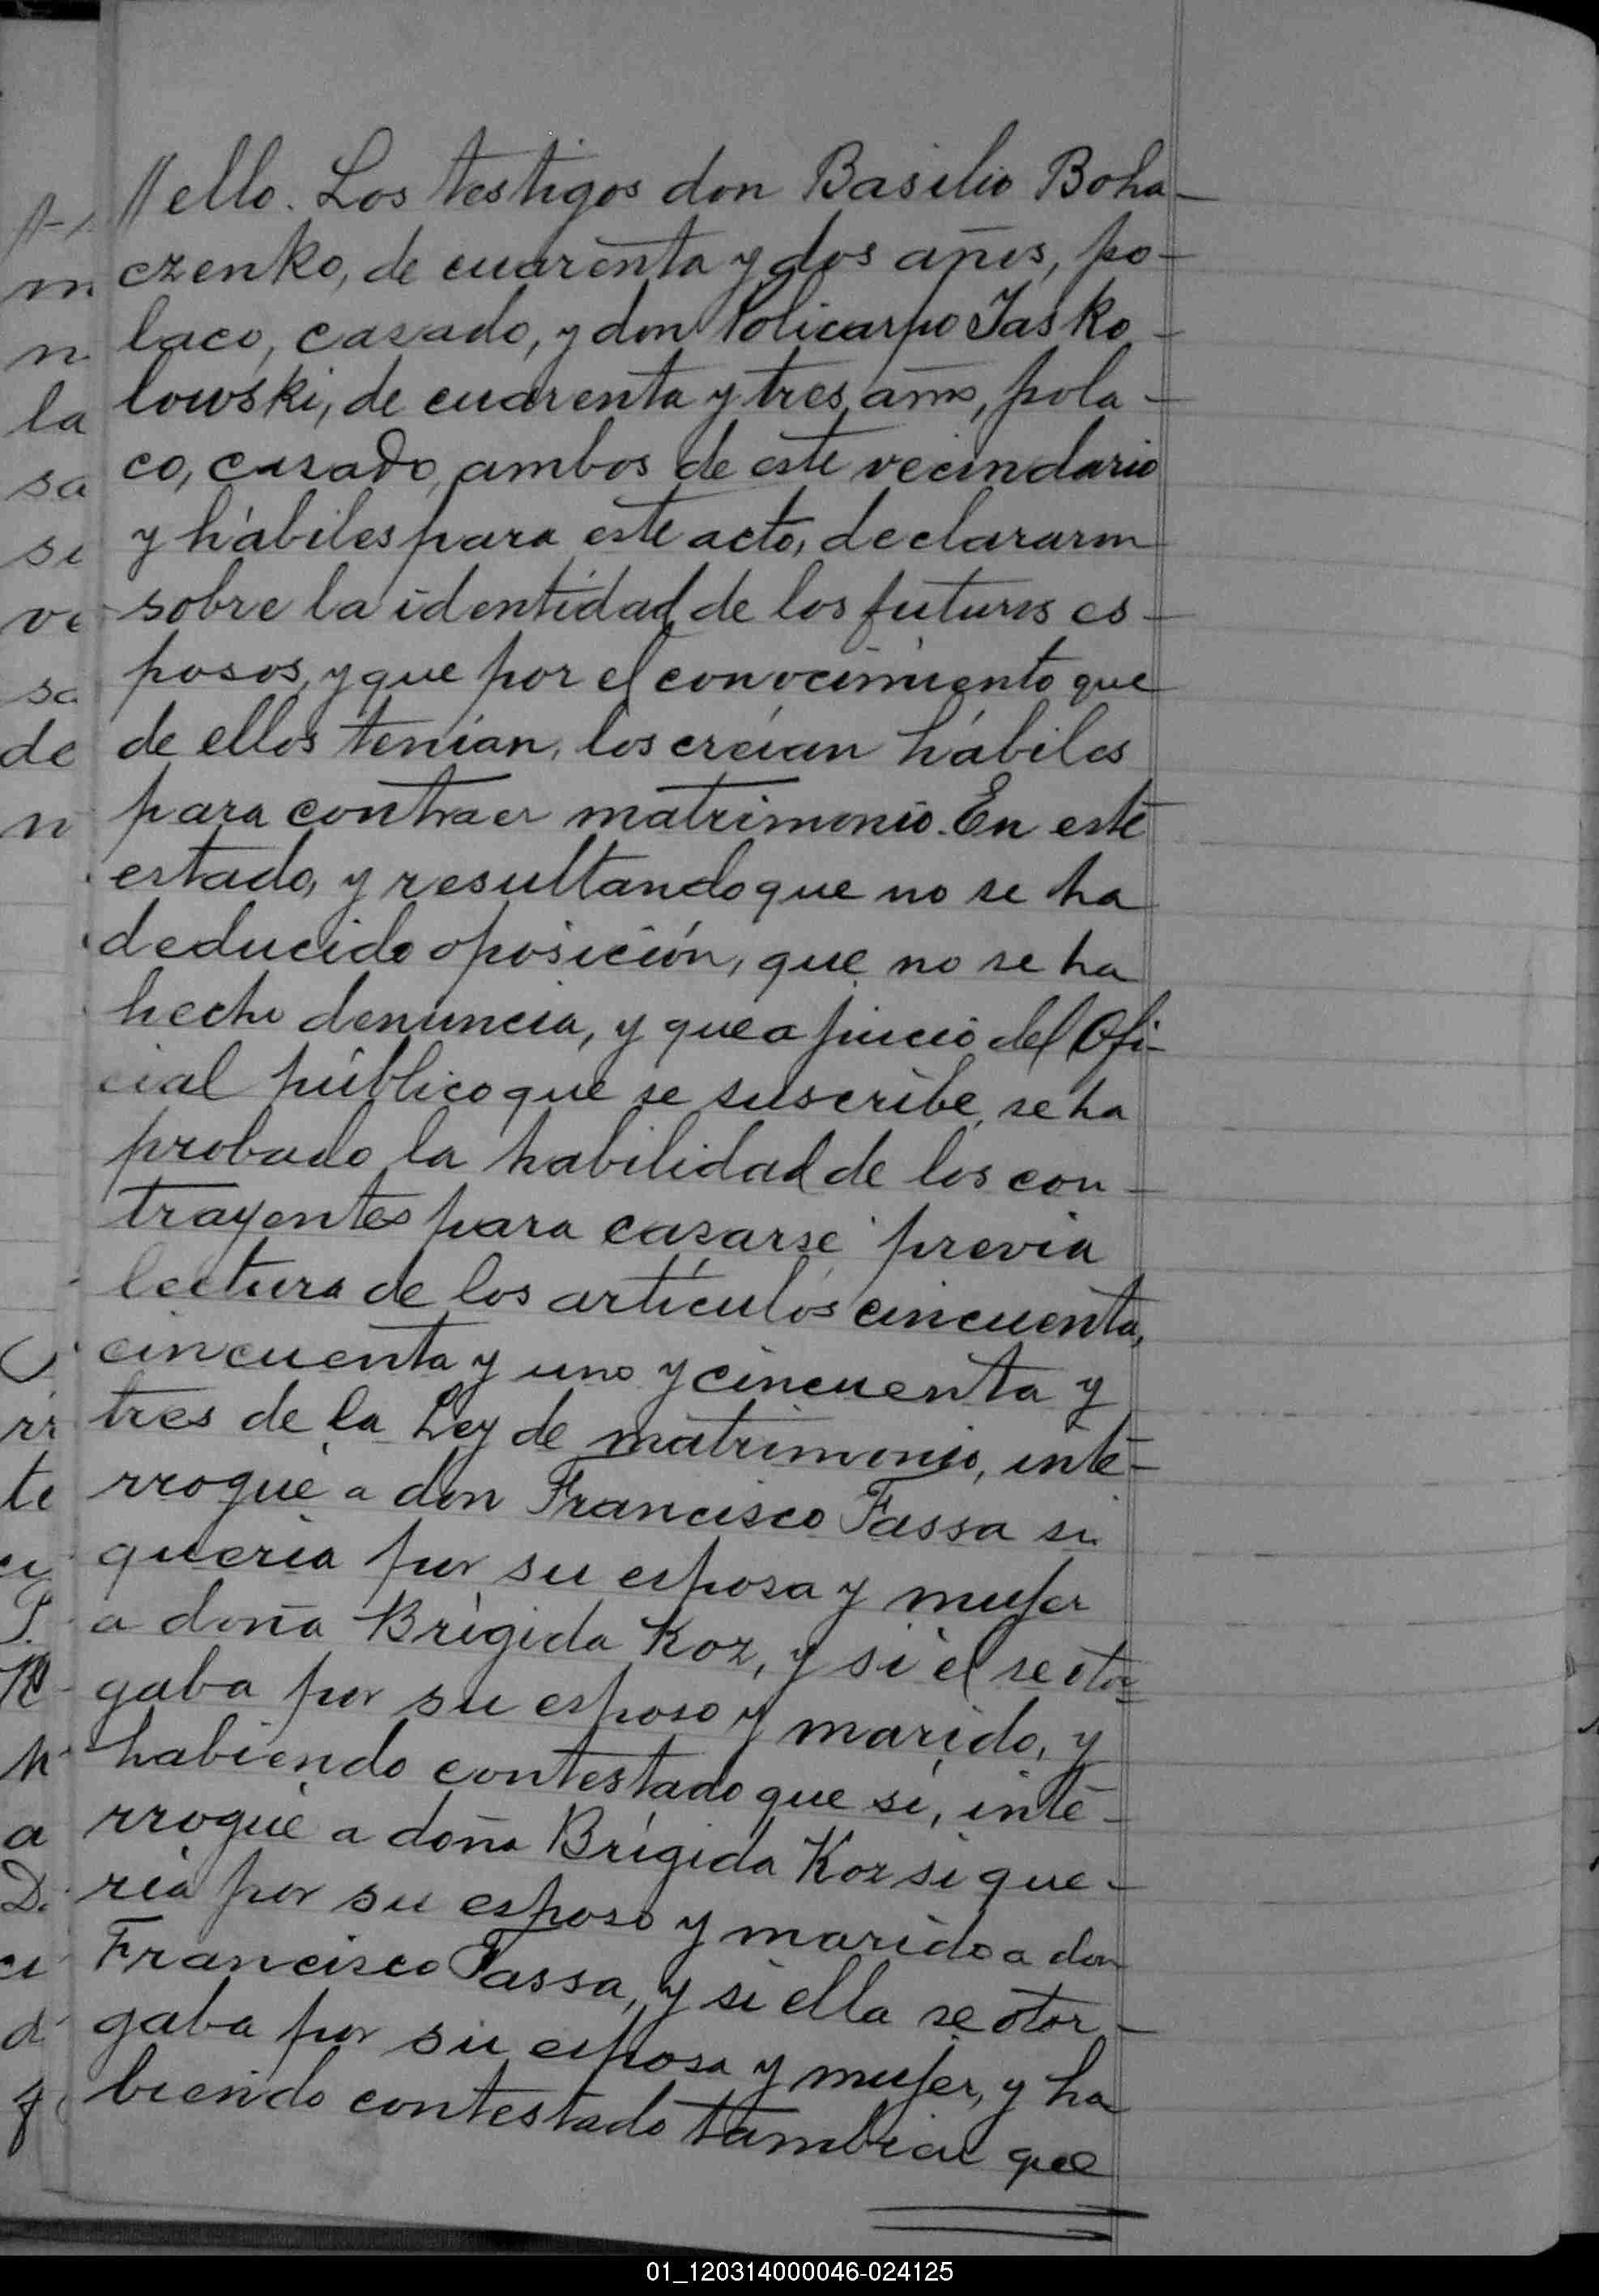 // ello. Los testigos don Basilio Boha-
czenko, de cuarenta y dos años, po-
laco, casado, y don Policarpo Jasko-
lowski, de cuarenta y tres años, pola-
co, casado, ambos de este vecindario
y hábiles para este acto, declararon
sobre la identidad de los futuros es-
posos, y que por el conocimiento que
de ellos tenían, los creían hábiles
para contraer matrimonio. En este
estado, y resultando que no se ha
deducido oposición, que no se ha
hecho denuncia, y que a juicio del Ofi-
cial público que se suscribe, se ha
probado la habilidad de los con-
trayentes para casarse, previa
lectura de los artículos cincuenta,
cincuenta y uno y cincuenta y
tres de la Ley de matrimonio, inte-
rrogué a don Francisco Tassa si
quería por su esposa y mujer
a doña Brígida Koz, y si él se otor=
gaba por su esposo y marido, y
habiendo contestado que sí, inte-
rrogué a doña Brígida Koz si que-
ría por su esposo y marido a don
Francisco Tassa, y si ella se otor-
gaba por su esposa y mujer, y ha
biendo contestado también que
m
n
la
sa
si
ve
sa
de
n
te
a
d
01_120314000046-024125